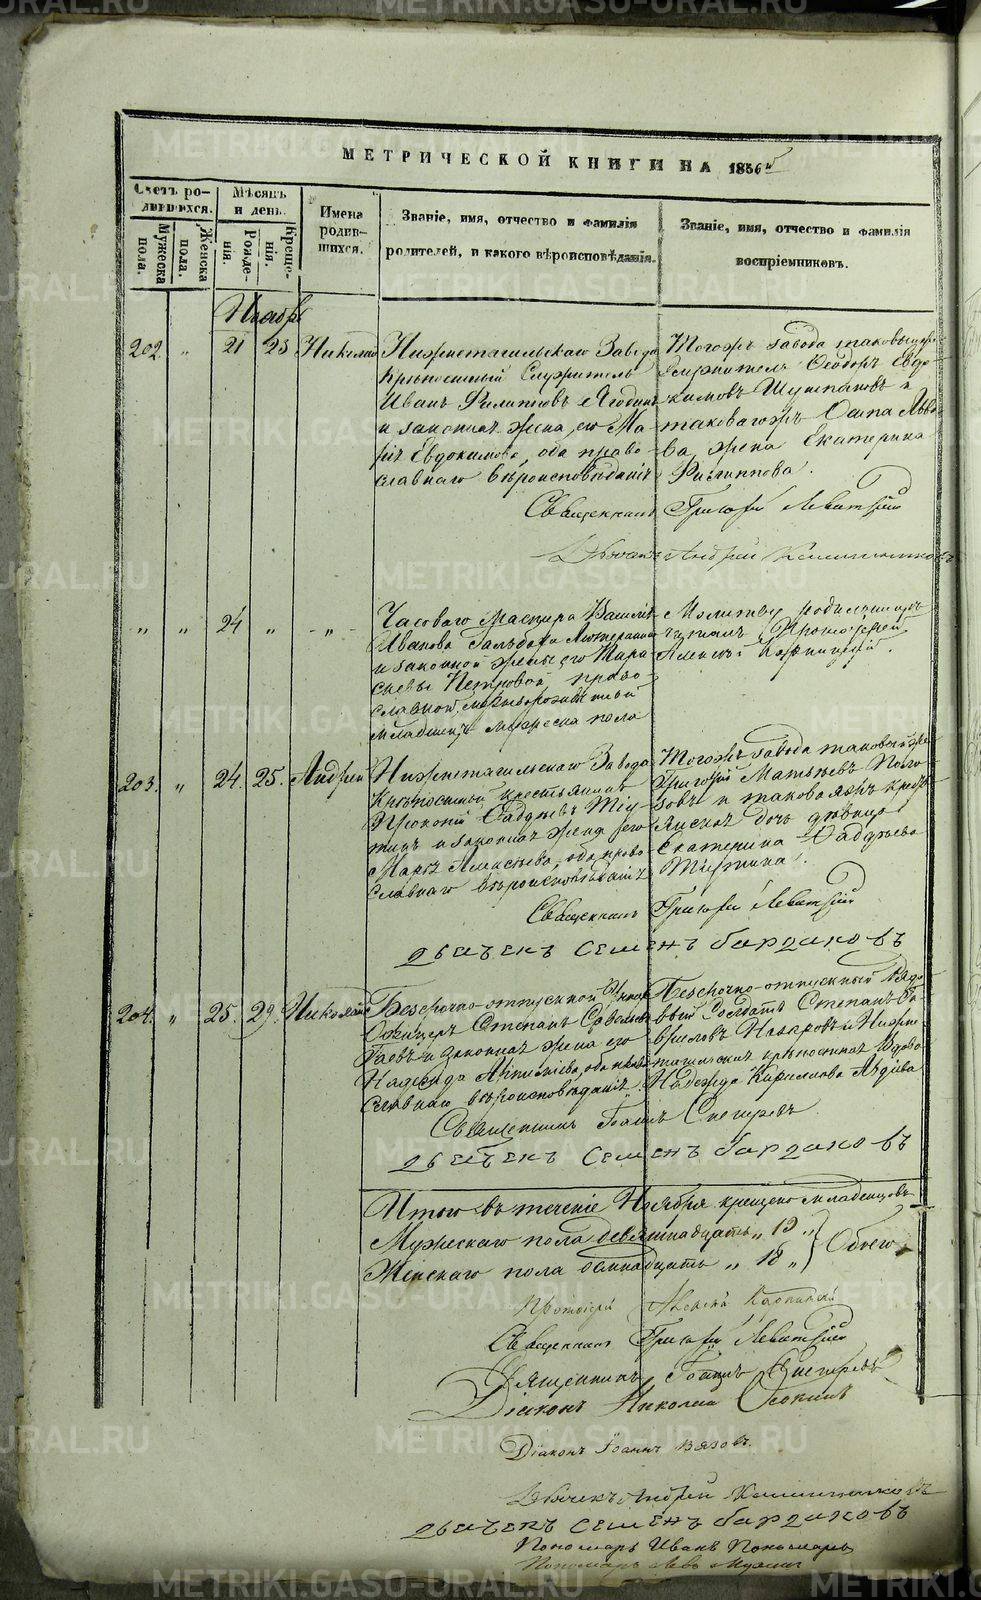 МЕТРИЧЕСКОЙ КНИГИ НА 1856й
Счетъ родившихся.
Мужеска пола.
Женска пола.
Мѣсяцъ и день.
Рожденія.
Крещенія.
Имена родившихся.
Званіе, имя, отчество и фамилія
родителей, и какого вѣроисповѣданія.
Званіе, имя, отчество и фамилія
воспріемниковъ.
Ноябрь
202 " 21 23 Николай
Нижнетагильскаго Завода
Крѣпостный Служитель
Иванъ Филипповъ
и законная жена его Ма-
рія Евдокимова, оба право-
славнаго вѣроисповѣданія
Тогожъ завода таковыйже
служитель Ѳеодоръ Евдо-
кимовъ и
таковагожъ Осипа Льво-
ва жена Екатерина
Филиппова.
Священникъ Григорій Левитскій
Дьячекъ Андрей
" " 24 " "
Часоваго Мастера Василія
Иванова Лютеранина
и законной жены его Пара-
скевы Петровой право-
славной, мертворожденный
младенецъ мужеска пола
Молитву родильницѣ
читалъ Протоіерей
Алексѣй Карпинскій.
203. " 24. 25. Андрей
Нижнетагильскаго Завода
Крѣпостный крестьянинъ
Прокопій Ѳаддѣевъ
и законная жена его
Марѳа, оба право-
славнаго вѣроисповѣданія
Тогожъ завода таковыйже
Григорій Матвѣевъ
и таковаяжъ кресть-
янская дочь дѣвица
Екатерина Ѳаддѣева
Священникъ Григорій Левитскій
дьячекъ Семенъ Бардаковъ
204. " 25. 29. Николай
Безсрочно-отпускной Унтеръ
Офицеръ Степанъ Савельевъ
и законная жена его
Надежда, оба право-
славнаго вѣроисповѣданія.
Безсрочно-отпускный Рядо-
вый Солдатъ Степанъ Га-
вриловъ Назаровъ и Нижне-
тагильская крѣпостная Вдова
Надежда Кирилова
Священникъ Іоаннъ Снегиревъ
дьячекъ Семенъ Бардаковъ
Итого въ теченіе Ноября крещено младенцовъ
Мужескаго пола девятнадцать " 19 "
Женскаго пола осмнадцать " 18 "
Обоего
Протоіерей Алексѣй Карпинскій
Священникъ Григорій Левитскій
Священникъ Іоаннъ Снегиревъ
Діаконъ Николай Осокинъ
Діаконъ Іоаннъ Вязовъ.
Дьячекъ Андрей
дьячекъ Семенъ Бардаковъ
Пономарь Иванъ Пономаревъ
Пономарь Левъ
METRIKI.GASO-URAL.RU